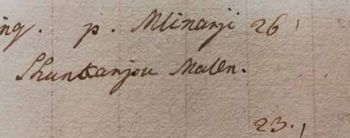 ing. p. Mlinarji 26,
Shunkanjou Malen.
23.,